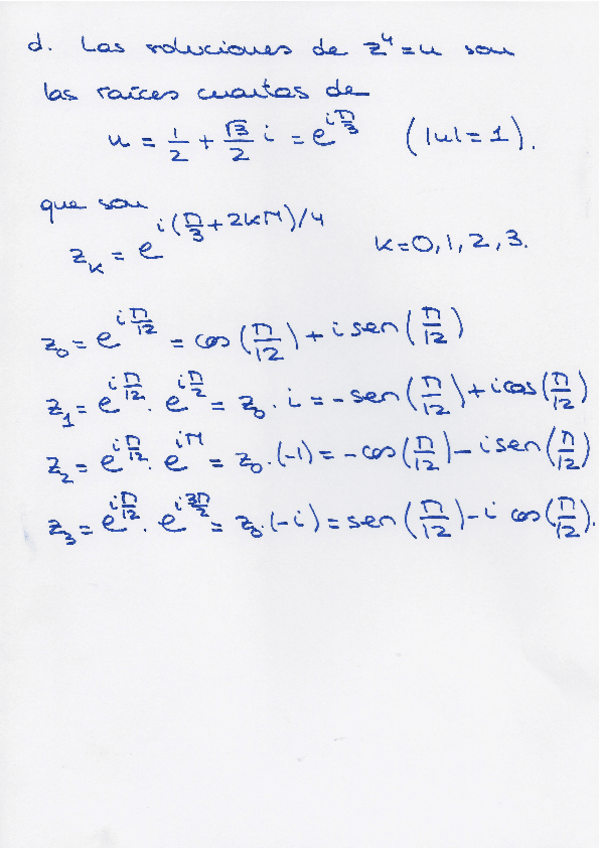 d. Las soluciones de z⁴ = u son
las raíces cuartas de
u = 1/2 + √3/2 i = e^{iπ/3} (|u| = 1).
que son
z_k = e^{i(π/3 + 2kπ)/4} k = 0, 1, 2, 3.
z₀ = e^{iπ/12} = cos(π/12) + i sen(π/12)
z₁ = e^{iπ/12} · e^{iπ/2} = z₀ · i = -sen(π/12) + i cos(π/12)
z₂ = e^{iπ/12} · e^{iπ} = z₀ · (-1) = -cos(π/12) - i sen(π/12)
z₃ = e^{iπ/12} · e^{i3π/2} = z₀ · (-i) = sen(π/12) - i cos(π/12).